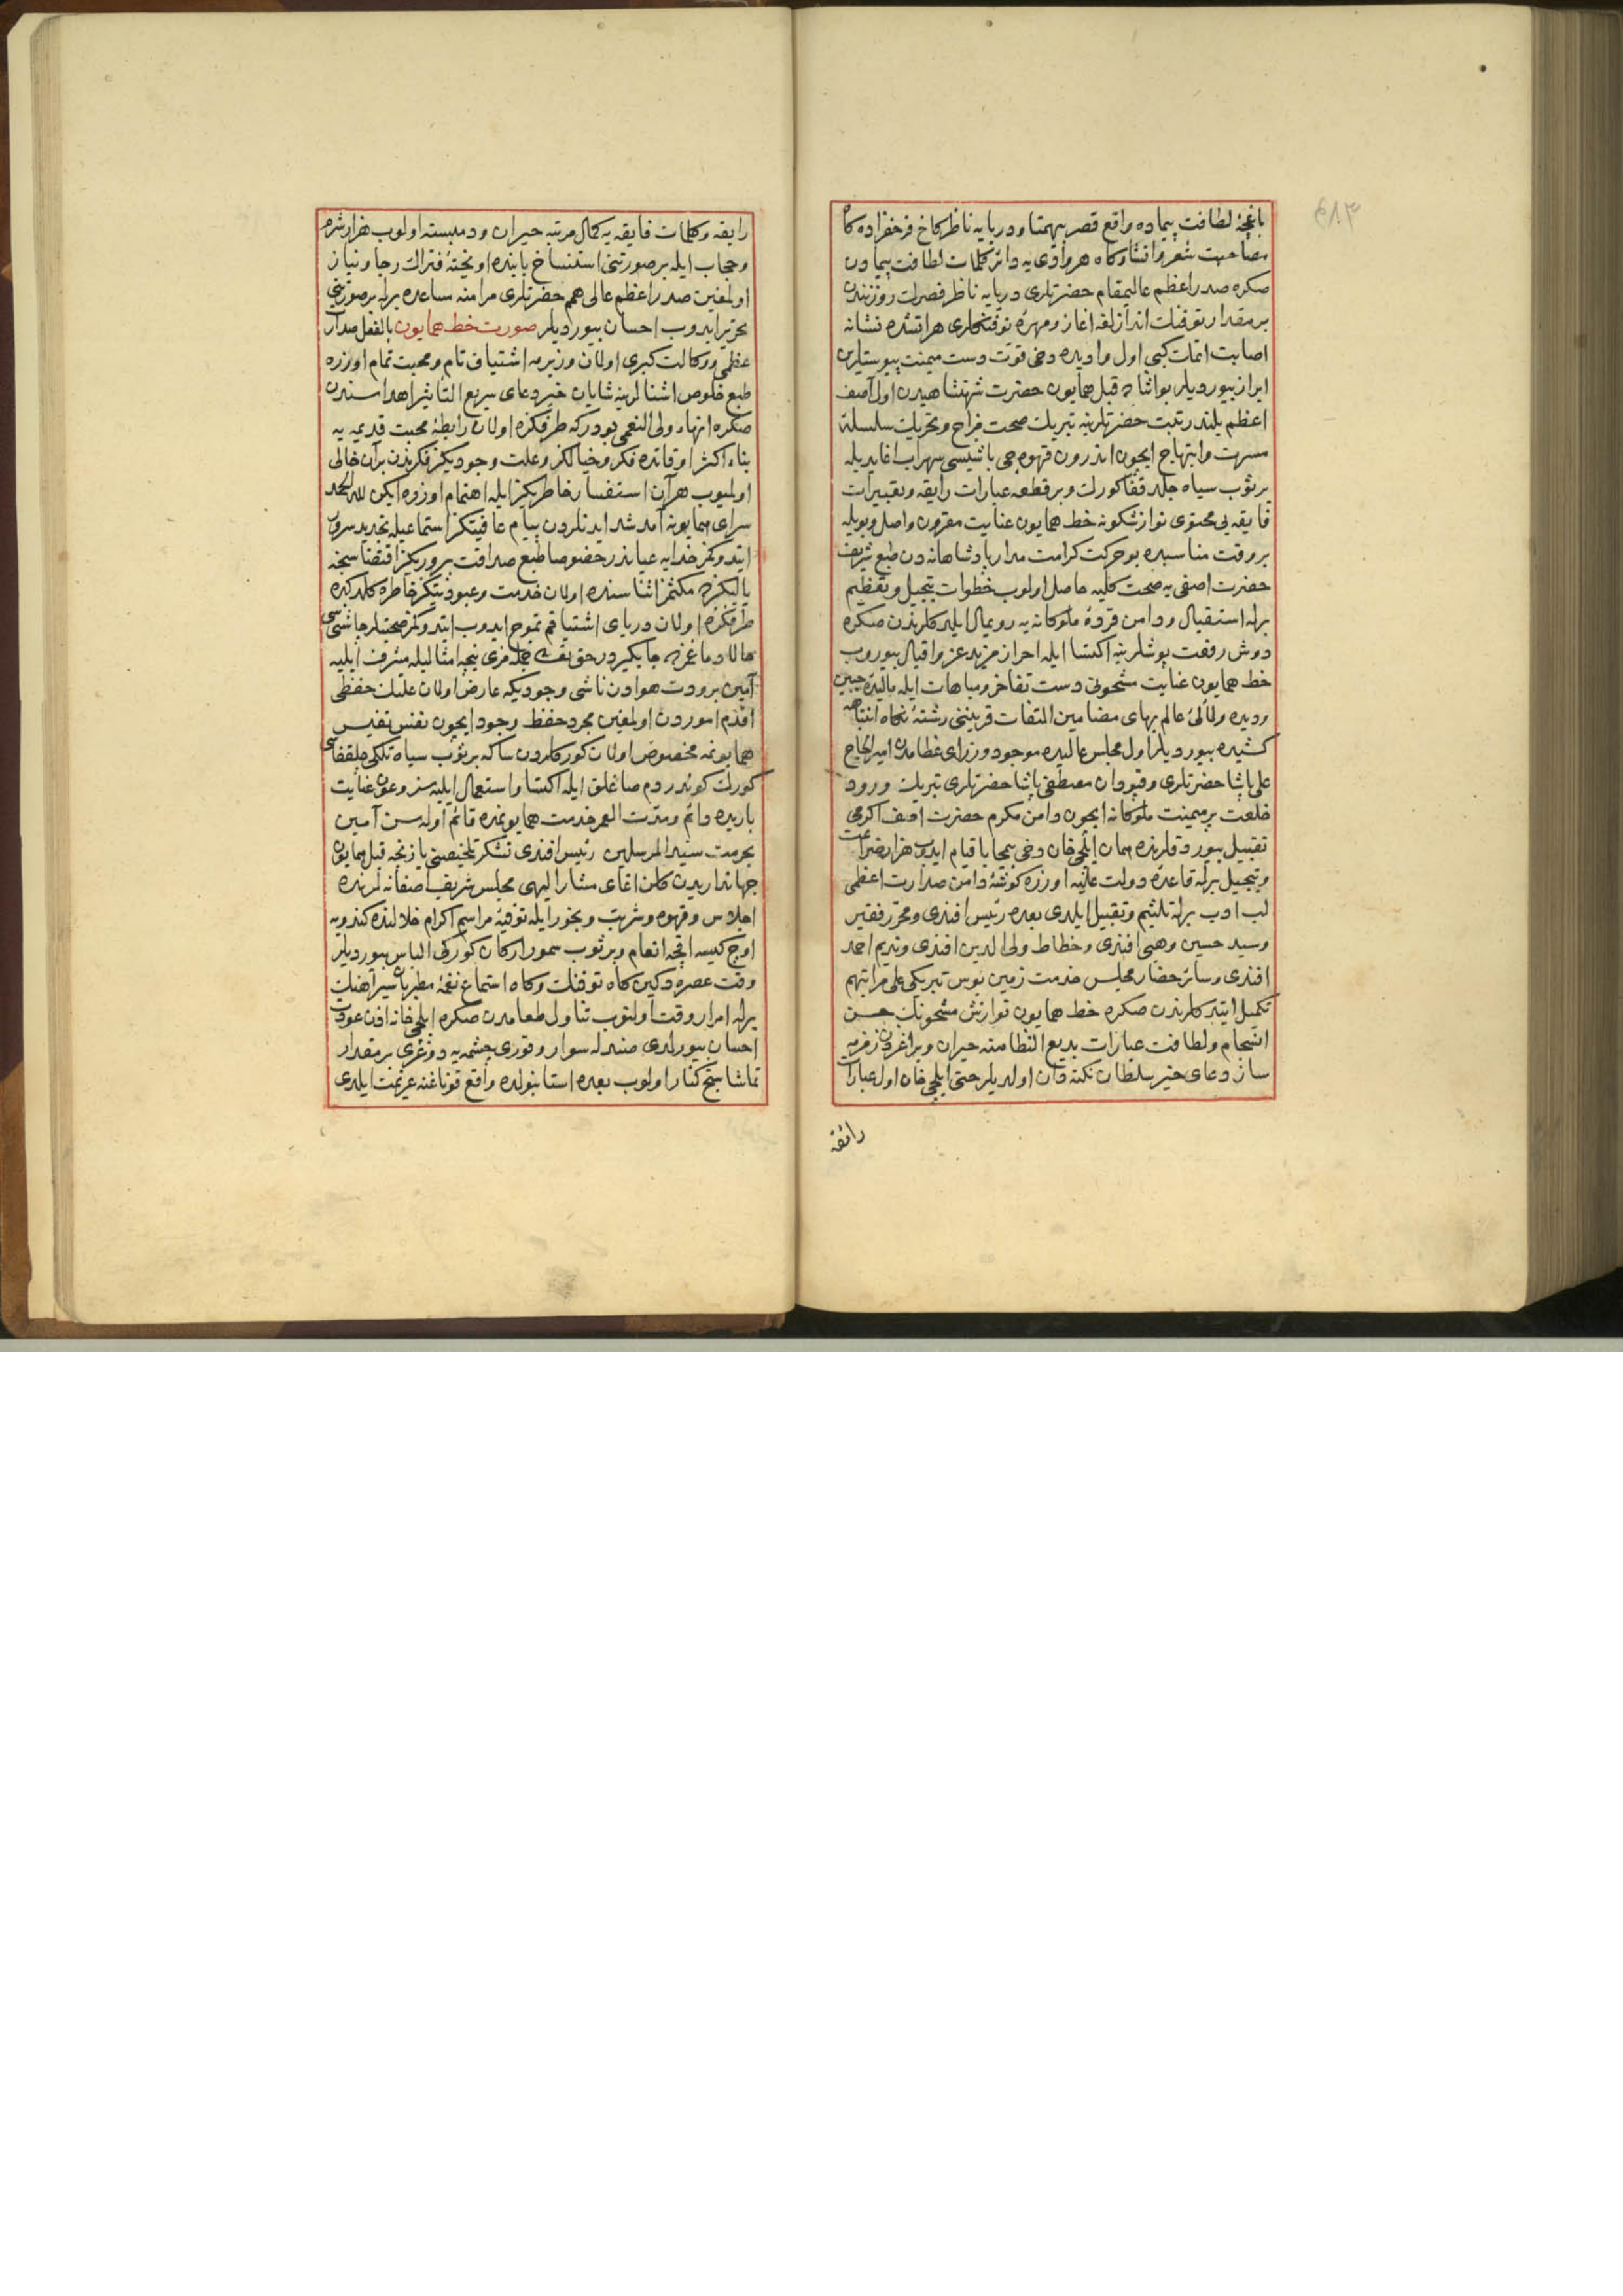 باغچهٔ لطافت پیماده واقع قصر بیهمتا و دریایه ناظر کاخ فرحفزاده کاه
مصاحبت شعر و انشا و کاه هر وادی یه دائر کلمات لطافت پیمادن
صکره صدر اعظم عالیمقام حضرتلری دریایه ناظر قصرک روزنندن
بر مقدار توفنک اندازلغه اغاز و مهرهٔ توفنکلری هر اتشده نشانه
اصابت اتمک کبی اول وادیده دخی قوت دست میمنت پیوستلرین
ابراز بیوردیلر بو اثناده قبل همایون حضرت شهنشاهیدن اول آصف
اعظم بلند رتبت حضرتلرینه تبریک صحت مزاج و تحریک سلسلهٔ
مسرت و ابتهاج ایچون اندرون قهوه جی باشیسی سهراب اغا یدیله
بر ثوب سیاه جلد قفا کورک و بر قطعه عبارات رایقه و تعبیرات
فایقه یی محتوی نوازشکونه خط همایون عنایت مقرون واصل و بویله
بر وقت مناسبده بو حرکت کرامت مدار پادشاهانه دن طبع شریف
حضرت اصفی یه صحت کلیه حاصل اولوب خطوات تبجیل و تعظیم
برله استقبال و دامن فروهٔ ملوکانه یه رویمال ایلدکلرندن صکره
دوش رفعت پوشلرینه اکتسا ایله احراز مزید عز و اقبال بیوروب
خط همایون عنایت مشحونی دست تفاخر و مباهات ایله مالیدهٔ جبین
و دیده و لآلئ عالم بهای مضامین التفات قرینینی رشتهٔ نکاه انتباهه
کشیده بیوردیلر اول مجلس عالیده موجود وزرای عظامدن امیر الحاج
علی پاشا حضرتلری و قپودان مصطفی پاشا حضرتلری تبریک ورود
خلعت بر میمنت ملوکانه ایچون دامن مکرم حضرت اصف اکرمی
تقبیل بیوردقلرنده همان ایلچی خان دخی بیمحابا قیام ایدوب هزار ضراعت
و تبجیل برله قاعدهٔ دولت علیه اوزره کوشهٔ دامن صدارت اعظمی
لب ادب برله تلثیم و تقبیل ایلدی بعده رئیس افندی و محرر فقیر
و سید حسین وهبی افندی و خطاط ولی الدین افندی و ندیم احمد
افندی و سائر حضار مجلس خدمت زمین بوس تبریکی علی مراتبهم
تکمیل ایتدکلرندن صکره خط همایون نوازش مشحونک حسن
انسجام و لطافت عبارات بدیع النظامنه حیران و بر اغزدن زمزمه
ساز دعای خیر سلطان نکته دان اولدیلر حتی ایلچی خان اول عبارات
رائقه
رایقه و کلمات فایقه یه کمال مرتبه حیران و دلبسته اولوب هزار شرم
و حجاب ایله بر صورتنی استنساخ بابنده اویختهٔ فتراک رجا و نیاز
اولمغین صدر اعظم عالی همم حضرتلری مرامنه مساعده برله بر صورتنی
تحریر ایدوب احسان بیوردیلر صورت خط همایون بالفعل صدارت
عظمی و وکالت کبری اولان وزیریمه اشتیاق تام و محبت تمام اوزره
طبع خلوص اشنالرینه شایان خیر دعای سریع التاثیر اهداسندن
صکره انهاء ولی النعمی بودر که طرفکزه اولان رابطهٔ محبت قدیمه یه
بناء اکثر اوقاتده فکر و خیالکز و علت وجودیکز فکرندن بر آن خالی
اولمیوب هر آن استفسار خاطریکز ایله اهتمام اوزره ایکن لله الحمد
سرای همایونه آمد شد ایدنلردن پیام عافیتکز استماعیله تجدید سرور
ایتدوکمز خدایه عیاندر خصوصا طبع صداقت پروریکز اقتضاسنجه
یالیکزده مکثمز اثناسنده اولان خدمت و عبودیتکز خاطره کلدکده
طرفکزه اولان دریای اشتیاقم تموج ایدوب ایتدوکمز صحبتلر چاشنیسی
حالا دماغمزده جایکیردر حق تعالی جمله مزی نیجه امثالیله مشرف ایلیه
آمین برودت هوادن ناشی وجودیکه عارض اولان علتک حفظی
اقدم اموردن اولمغین مجرد حفظ وجود ایچون نفس نفیس
همایونمه مخصوص اولان کورکلردن سکا بر ثوب سیاه تلکی چلقفاسی
کورک کوندردم صاغلق ایله اکتسا و استعمال ایلیه سز و عون عنایت
باریده دائم و مدت العمر خدمت همایونمده قائم اوله سن آمین
بحرمت سید المرسلین رئیس افندی تشکر تلخیصنی یازنجه قبل همایون
جهانداریدن کلن اغای مشار الیهی مجلس شریف اصفانه لرنده
اجلاس و قهوه و شربت و بخور ایله توفیهٔ مراسم اکرام خلالنده کندویه
اوج کیسه اقچه انعام و بر ثوب سمور ارکان کورکی الباس بیوردیلر
وقت عصره دکین کاه توفنک و کاه استماع نغمهٔ مطربان سیر آهنک
برله امرار وقت اولنوب تناول طعامدن صکره ایلچی خانه اذن عودت
احسان بیورلدی صندله سوار و قوری چشمه یه دوغری بر مقدار
تماشا سنج کنار اولوب بعده استانبولده واقع قوناغنه عزیمت ایلدی